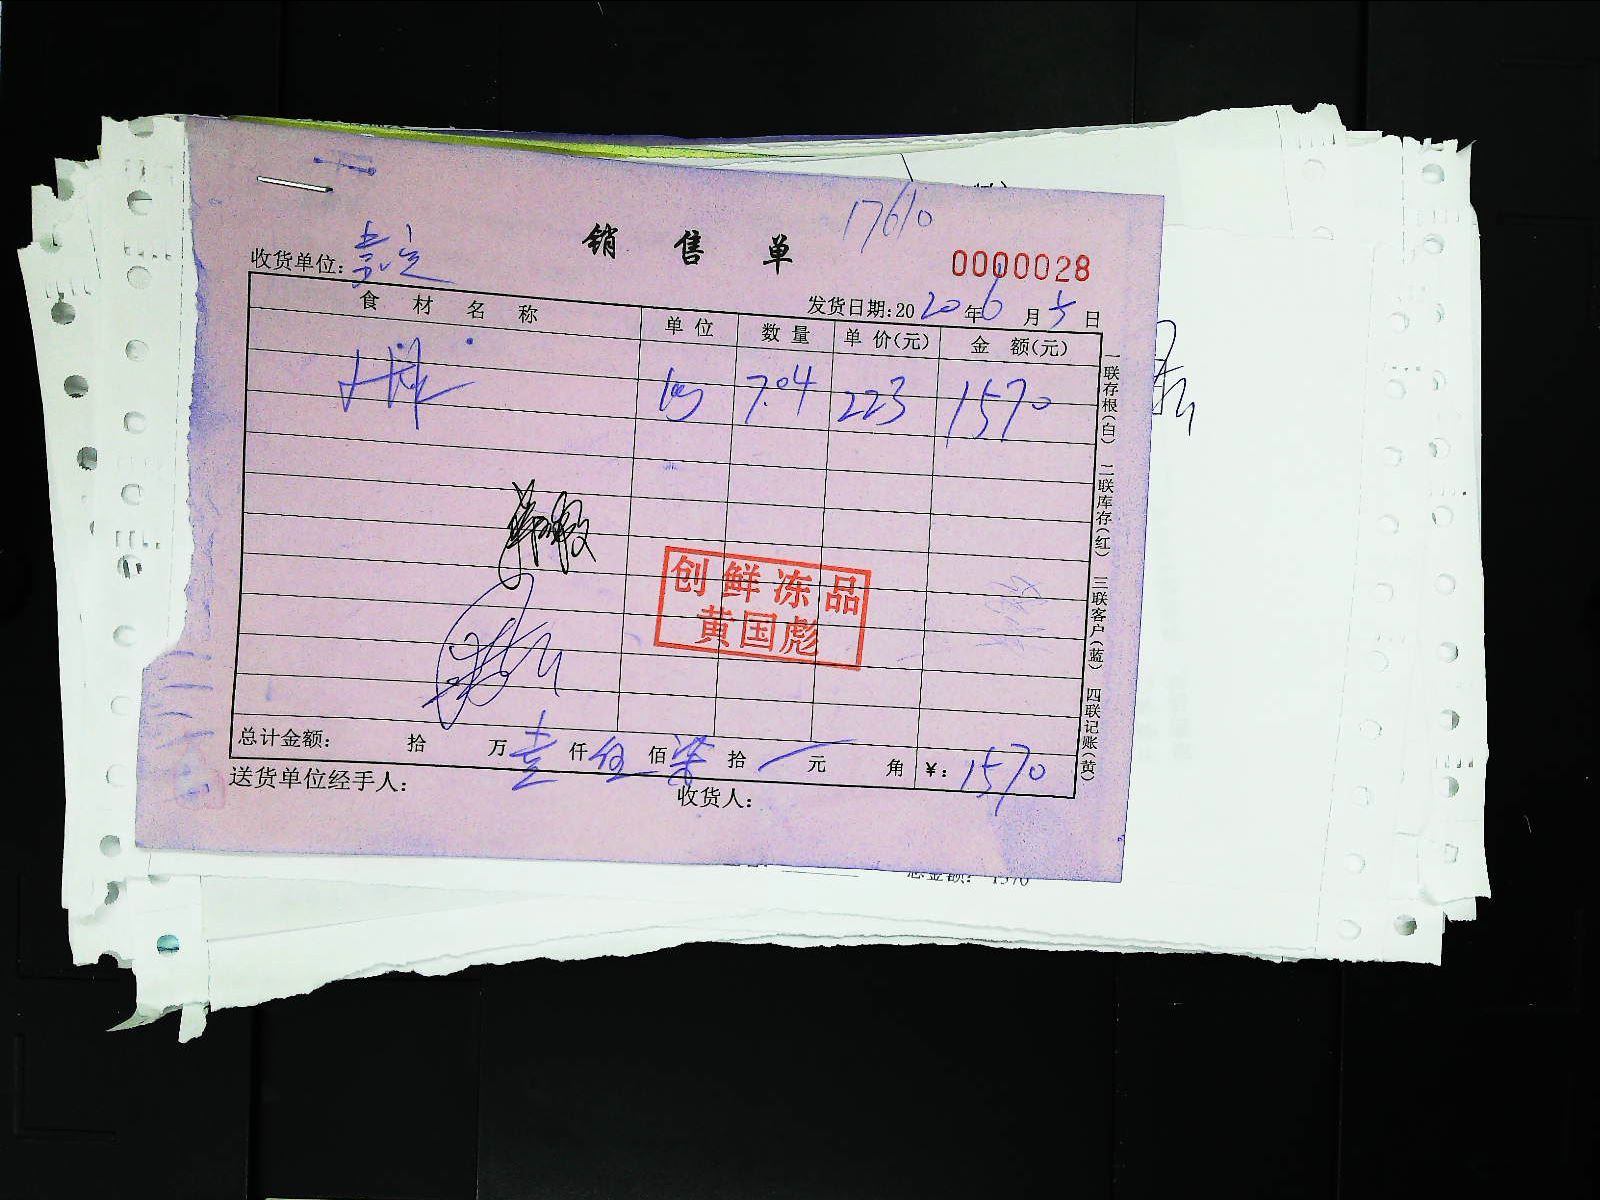 17610
销售单
0000028
收货单位：嘉定
发货日期：2020年6月5日
食材名称 单位 数量 单价（元） 金额（元）
kg 7.04 223 1570
创鲜冻品
黄国彪
总计金额： 拾 万壹仟伍佰柒拾 元 角 ¥：1570
送货单位经手人： 收货人：
一联存根（白） 二联库存（红） 三联客户（蓝） 四联记账（黄）
总金额： 1570